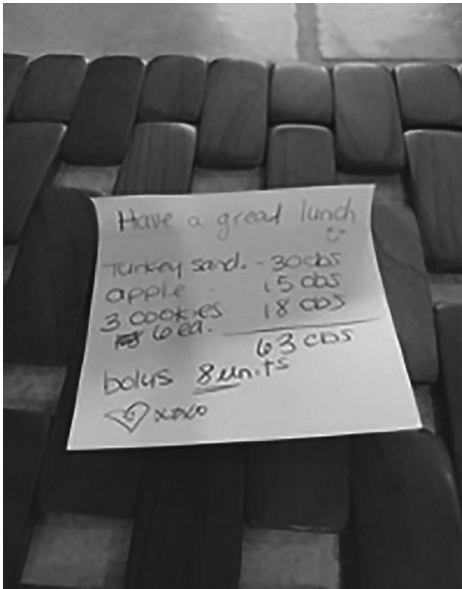 Have a great lunch
Turkey sand. - 30 cbs
apple 15 cbs
3 cookies 18 cbs
6 ea.
63 cbs
bolus 8 units
xoxo